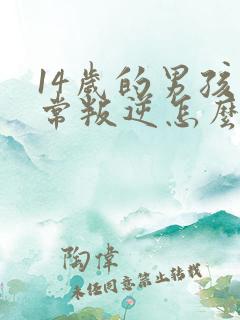 14歲的男孩
常叛逆怎麼
陶偉
未经同意禁止转载